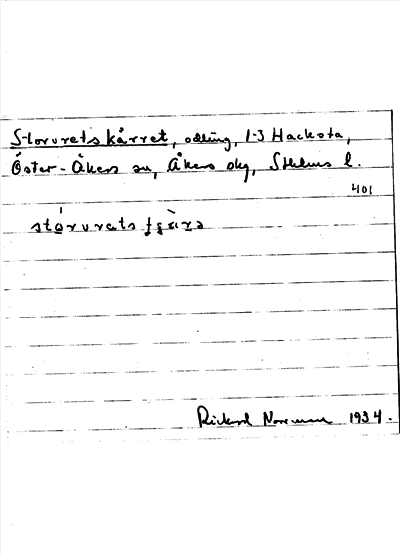 Storurets kärret, odling, 1-3 Hacksta,
Öster-Åkers sn, Åkers skg, Sthlms l.
401
Rickard Norrman 1934.